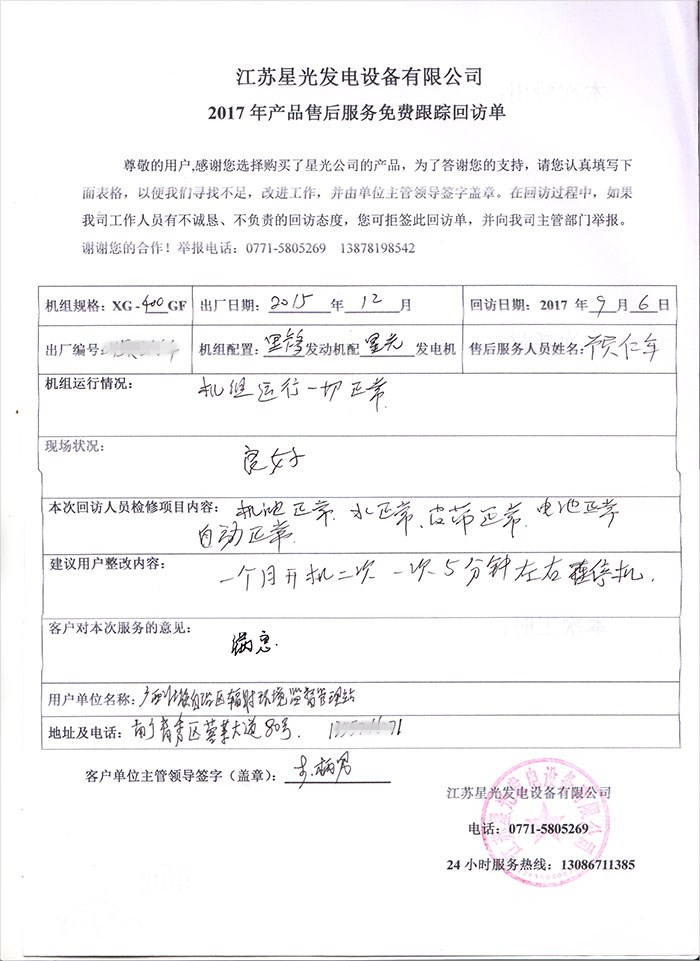 江苏星光发电设备有限公司
2017 年产品售后服务免费跟踪回访单
尊敬的用户,感谢您选择购买了星光公司的产品，为了答谢您的支持，请您认真填写下
面表格，以便我们寻找不足，改进工作，并由单位主管领导签字盖章。在回访过程中，如果
我司工作人员有不诚恳、不负责的回访态度，您可拒签此回访单，并向我司主管部门举报。
谢谢您的合作！举报电话：0771-5805269 13878198542
机组规格：XG-400GF 出厂日期：2015 年 12 月 回访日期：2017 年 9 月 6 日
出厂编号: 机组配置：里 发动机配 星光 发电机 售后服务人员姓名: 仁年
机组运行情况： 机组运行一切正常
现场状况： 良好
本次回访人员检修项目内容： 机油正常、水正常、皮带正常、电池正常
自动正常
建议用户整改内容： 一个月开机二次 一次5分钟左右 停机.
客户对本次服务的意见： 满意.
用户单位名称: 广西壮族自治区辐射环境监督管理站
地址及电话: 南宁青秀区 大道80号. 71
客户单位主管领导签字（盖章）：
江苏星光发电设备有限公司
电话：0771-5805269
24 小时服务热线：13086711385
江苏星光发电设备有限公司